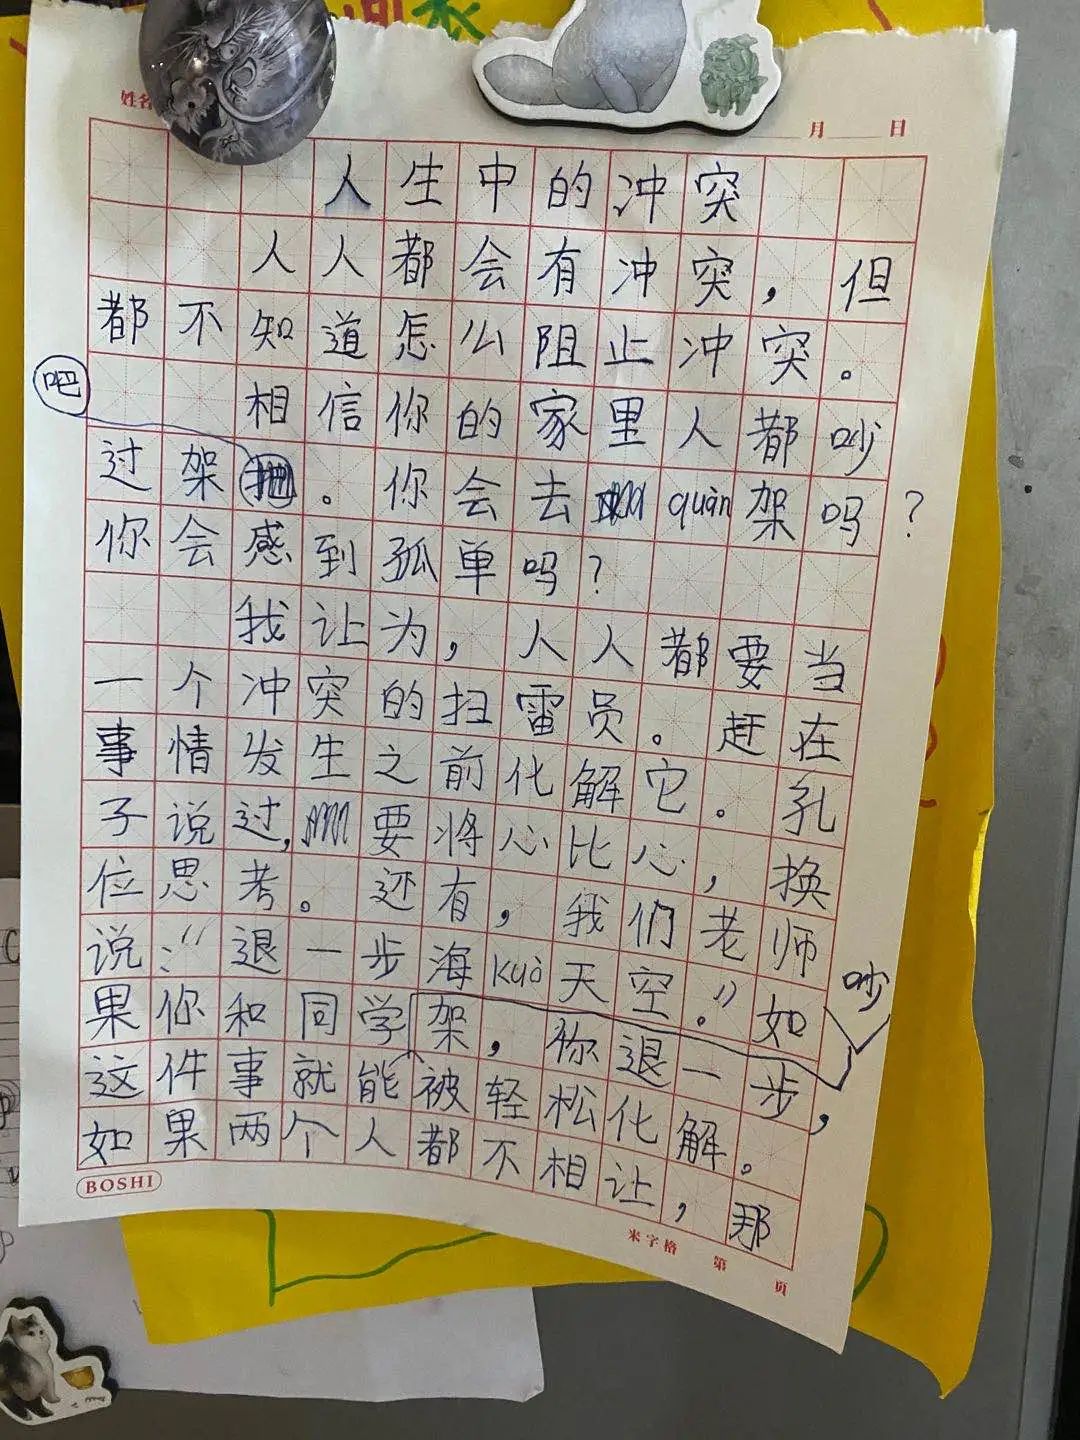 姓名
月 日
人生中的冲突
人人都会有冲突，但
都不知道怎么阻止冲突。
相信你的家里人都吵
吧
过架。你会去quàn架吗？
你会感到孤单吗？
我让为，人人都要当
一个冲突的扫雷员。赶在
事情发生之前化解它。孔
子说过，要将心比心，换
位思考。还有，我们老师
说：“退一步海kuò天空。”如
吵
果你和同学架，你退一步，
这件事就能被轻松化解。
如果两个人都不相让，那
BOSHI
米字格 第 页